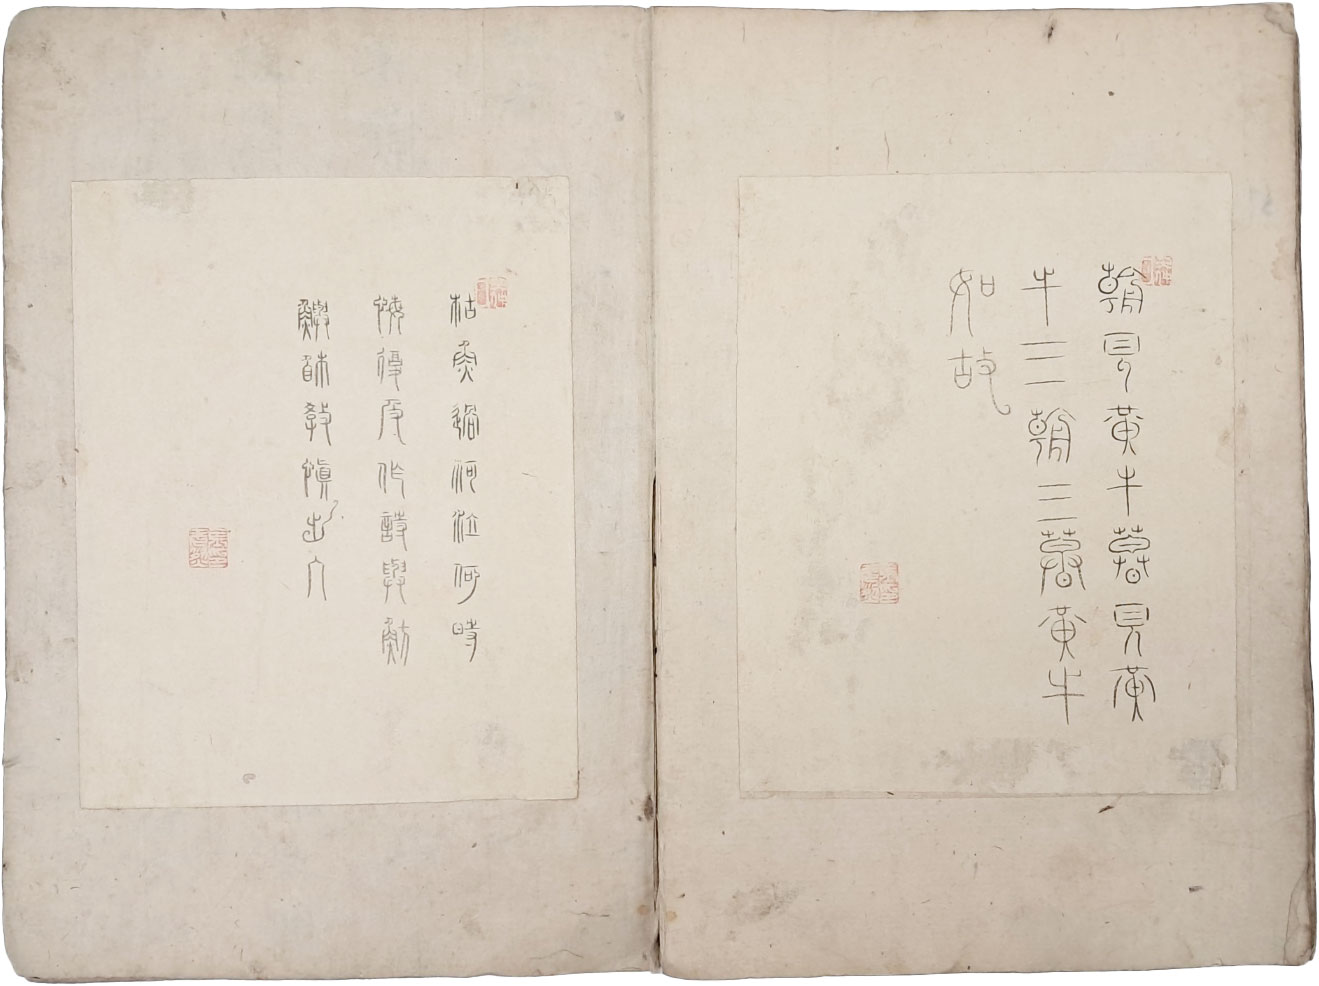 朝見黃牛暮見黃
牛三朝三暮黃牛
如故
枯魚過河泣何時
悔復及作書與魴
鱮相教慎出入